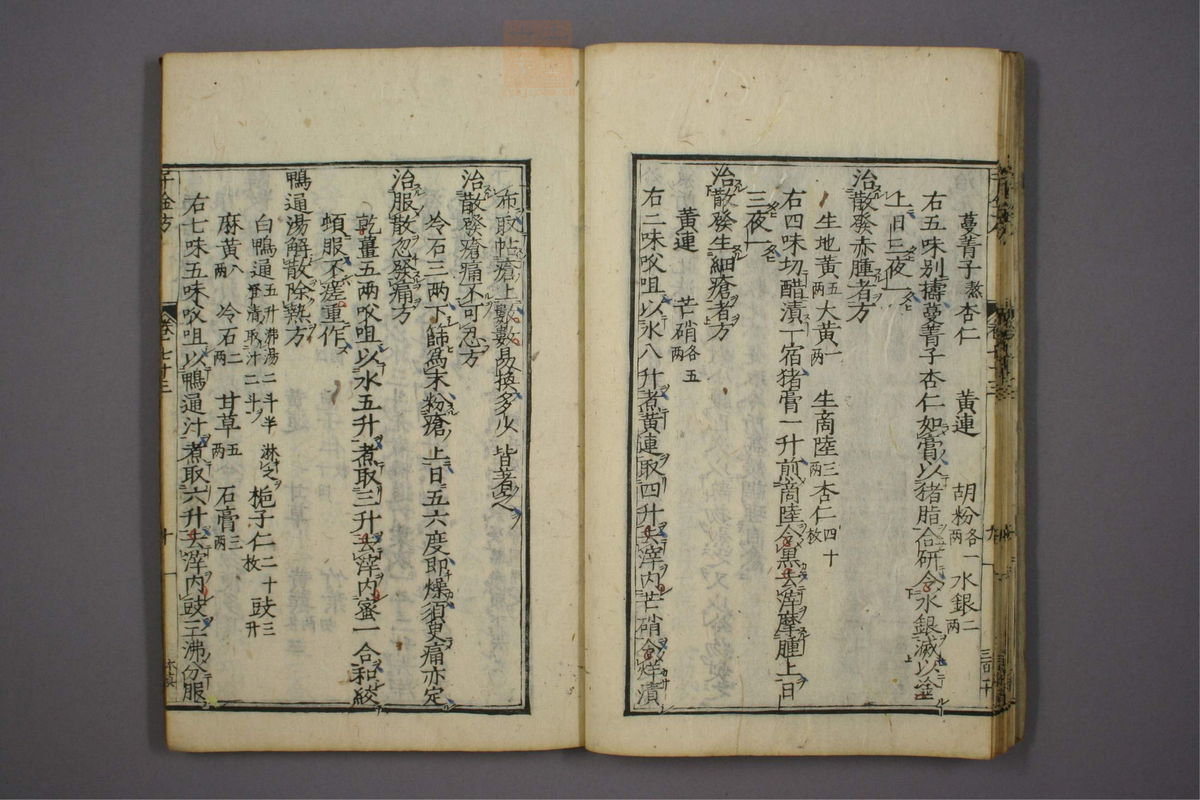 蔓菁子熬 杏仁 黄連 胡粉各一兩 水銀二兩
右五味別擣蔓菁子杏仁如膏以猪脂合研令水銀滅以塗
上日三夜一
治散發赤腫者方
生地黄五兩 大黄一兩 生商陸三兩 杏仁四十枚
右四味切醋漬一宿猪膏一升煎商陸令黒去滓摩腫上日
三夜一
治散發生細瘡者方
黄連 芒硝各五兩
右二味㕮咀以水八升煮黄連取四升去滓内芒硝令烊漬
布取帖瘡上數數易換多少皆著之
治散發瘡痛不可忍方
冷石三兩下篩為末粉瘡上日五六度即燥須臾痛亦定
治服散忽發痛方
乾薑五兩㕮咀以水五升煮取三升去滓内蜜一合和絞
頓服不瘥重作
鴨通湯解散除熱方
白鴨通五升沸湯二斗半淋之澄清取汁二斗 梔子仁二十枚 豉三升
麻黄八兩 冷石二兩 甘草五兩 石膏三兩
右七味五味㕮咀以鴨通汁煮取六升去滓内豉三沸分服
千金方
卷七十三
十